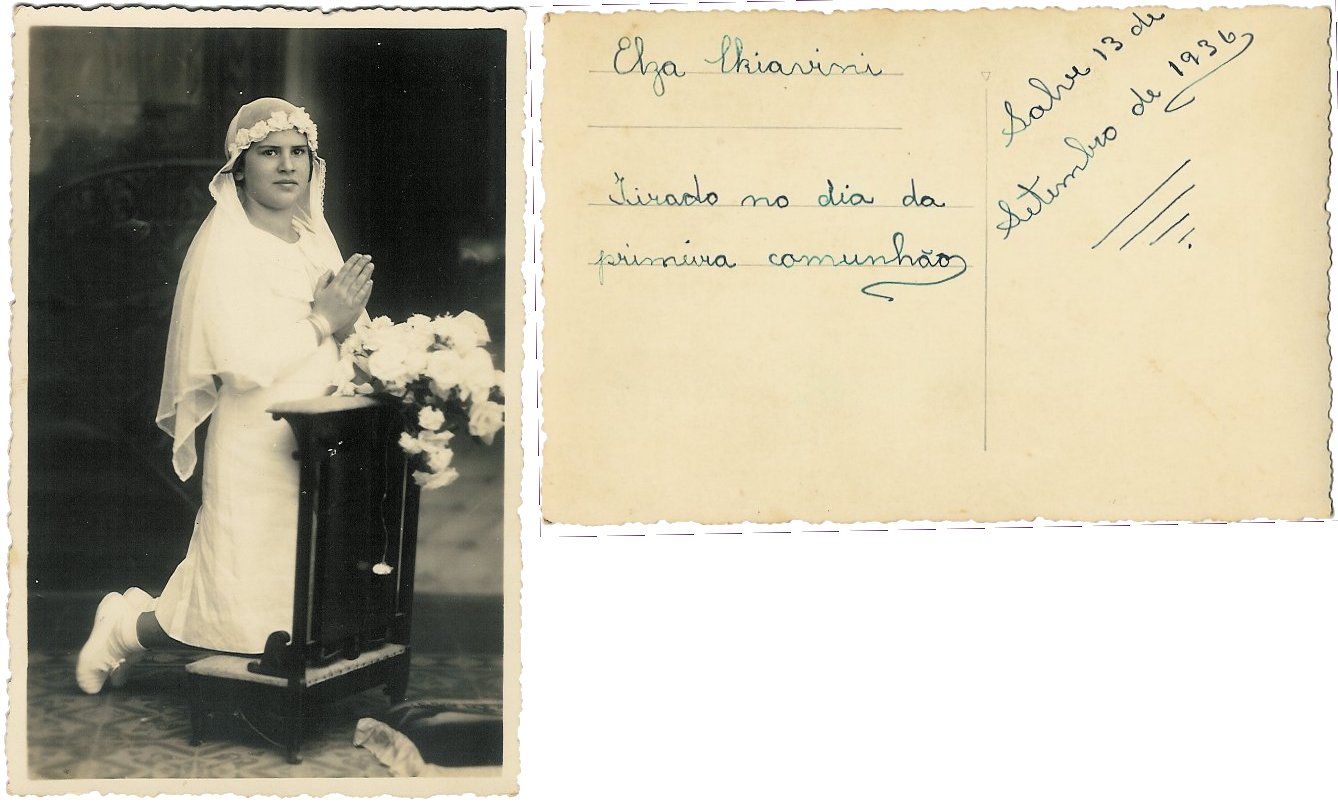 Elza Chiavini
Tirado no dia da
primeira comunhão
Salve 13 de
Setembro de 1936